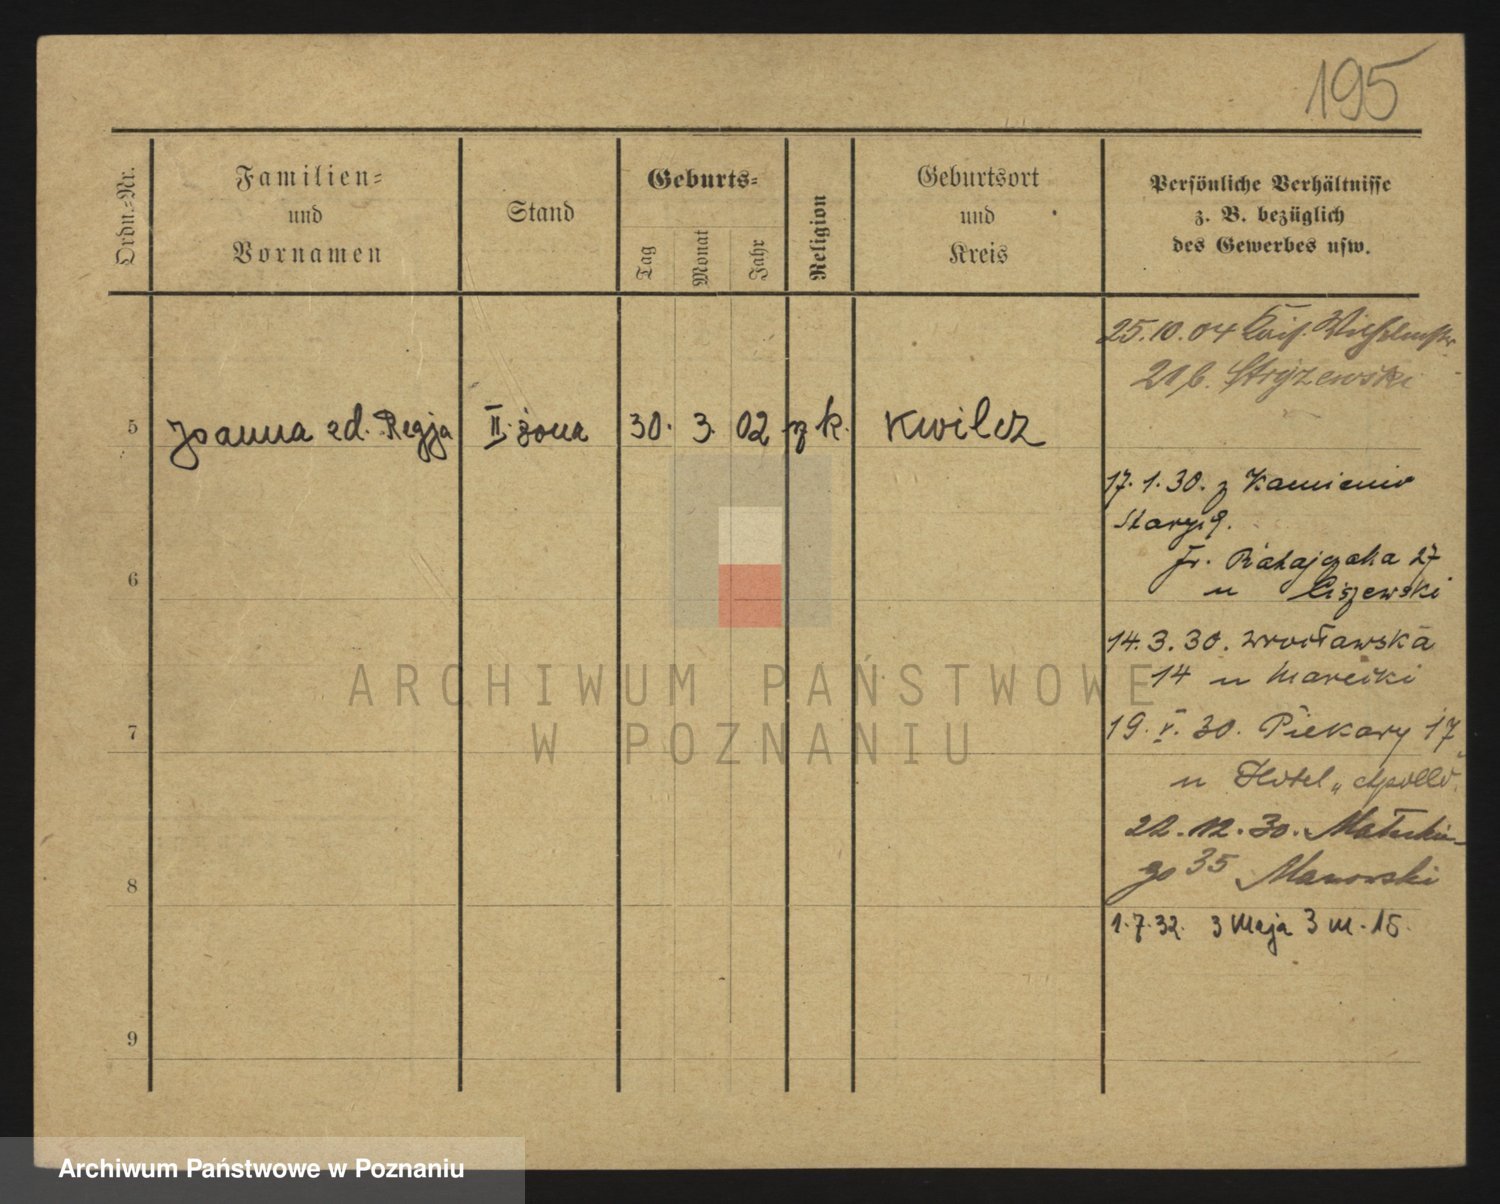 195
Ordn.-Nr.
Familien-
und
Vornamen
Stand
Geburts-
Tag
Monat
Jahr
Religion
Geburtsort
und
Kreis
Persönliche Verhältnisse
z. B. bezüglich
des Gewerbes usw.
25.10.04 Kais. Wilhelmstr.
21 b. Stryzewski
5 Joanna zd. Regja II. żona 30. 3. 02 rz k. Kwilcz
17. 1. 30. z Kamieniec
Stary 9.
Fr. Ratajczaka 27
6
u Ciszewski
14. 3. 30. Wrocławska
14 u Marecki
19. V. 30. Piekary 17
7
u Hotel „Apollo"
22. 12. 30. Małeckie-
go 35 Manowski
8
1. 7. 32. 3 Maja 3 m. 15.
9
ARCHIWUM PAŃSTWOWE
W POZNANIU
Archiwum Państwowe w Poznaniu